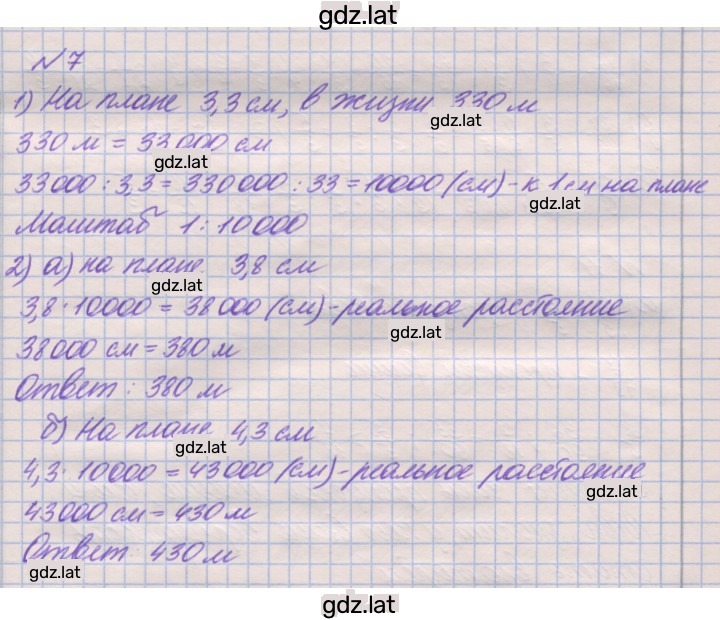 gdz.lat
№7
1) На плане 3,3 см, в жизни 330 м
gdz.lat
330 м = 33 000 см
gdz.lat
33000 : 3,3 = 330000 : 33 = 10000 (см) - к 1 см на плане
gdz.lat
Масштаб 1 : 10 000
2) а) на плане 3,8 см
gdz.lat
3,8 · 10000 = 38000 (см) - реальное расстояние
gdz.lat
38000 см = 380 м
Ответ : 380 м
б) На плане 4,3 см
gdz.lat
4,3 · 10000 = 43000 (см) - реальное расстояние
gdz.lat
43000 см = 430 м
Ответ 430 м
gdz.lat
gdz.lat